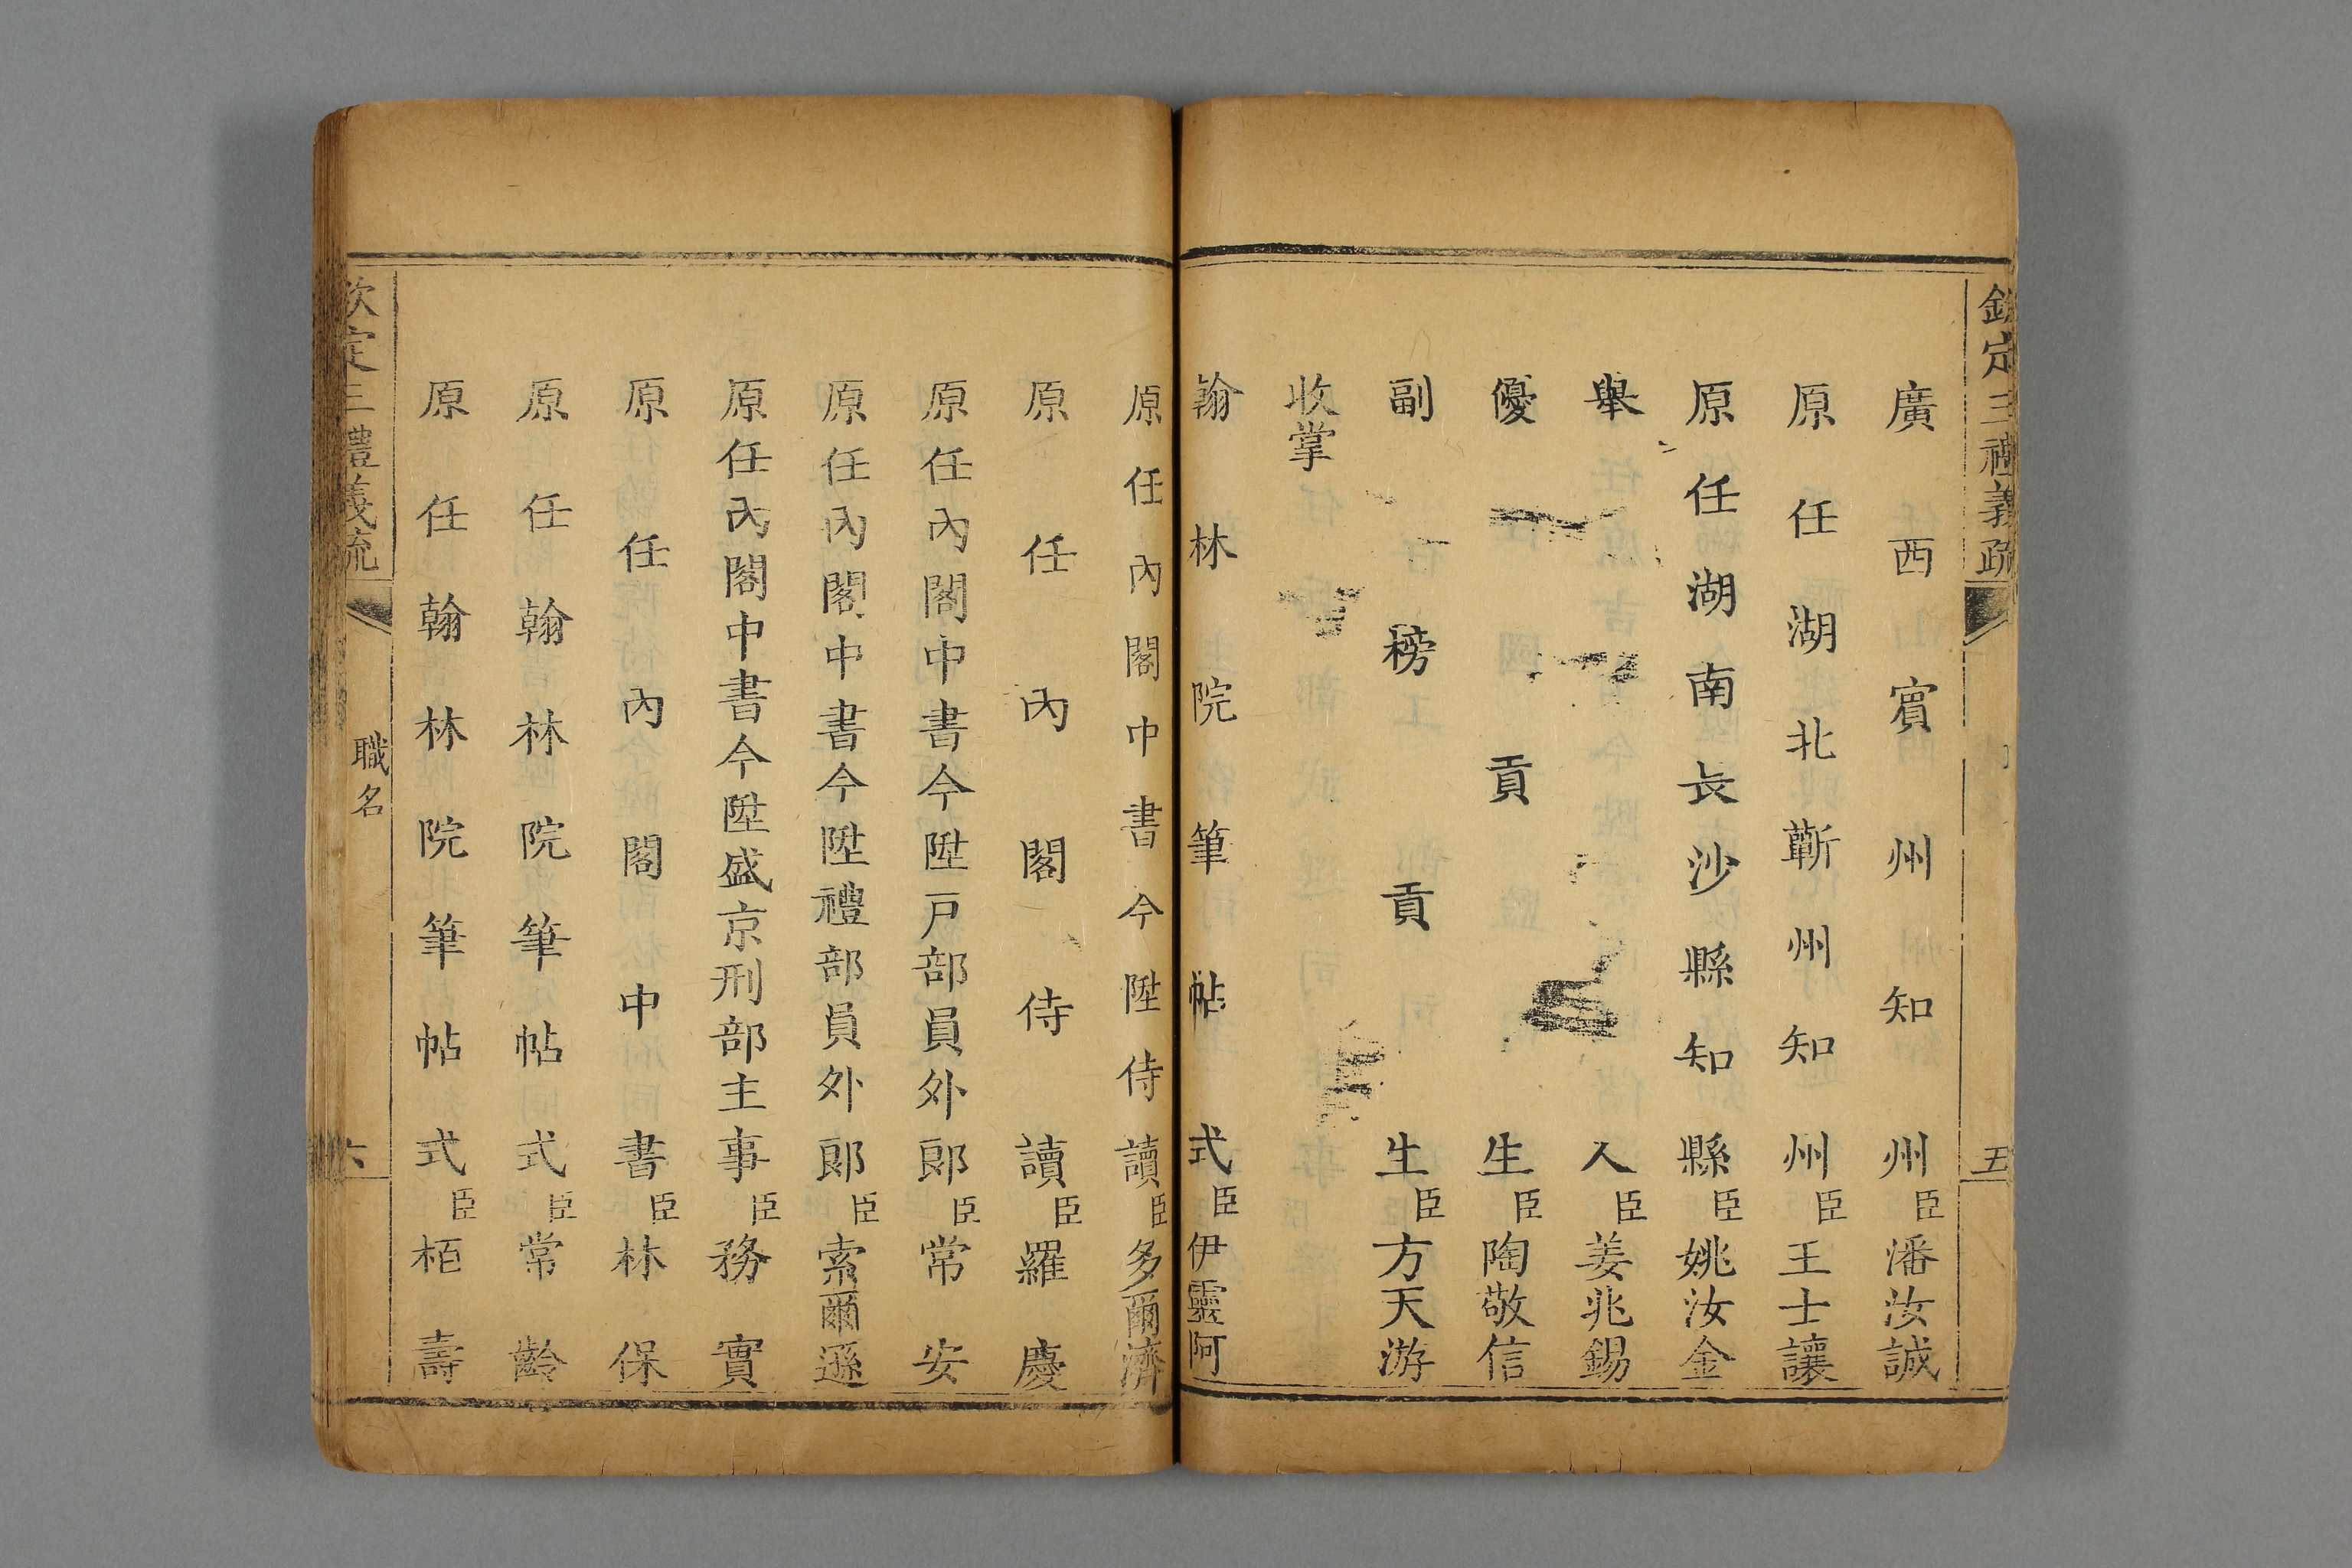 欽定三禮義疏
五
廣西賓州知州臣潘汝誠
原任湖北蘄州知州臣王士讓
原任湖南長沙縣知縣臣姚汝金
舉人臣姜兆錫
優貢生臣陶敬信
副榜貢生臣方天游
收掌
翰林院筆帖式臣伊靈阿
原任內閣中書今陞侍讀臣多爾濟
原任內閣侍讀臣羅慶
原任內閣中書今陞戸部員外郎臣常安
原任內閣中書今陞禮部員外郎臣索爾遜
原任內閣中書今陞盛京刑部主事臣務實
原任內閣中書臣林保
原任翰林院筆帖式臣常齡
原任翰林院筆帖式臣栢壽
欽定三禮義疏
職名
六